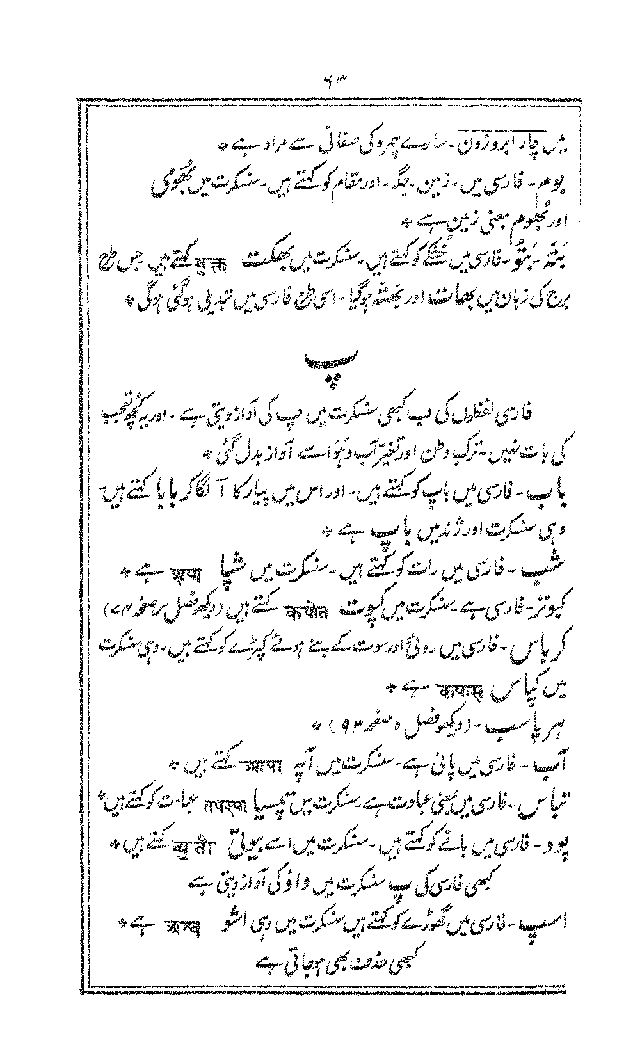 ۶۳
میں چار ابرو زدن - سارے چہرہ کی صفائی سے مراد ہے *
بوم - فارسی میں - زمین - جگہ - اور مقام کو کہتے ہیں - سنسکرت میں بھُومی
اور بھُوم بمعنی زمین ہے *
فارسی میں کو کہتے ہیں - سنسکرت میں بھکت भुक्त کہتے ہیں جس طرح
برج کی زبان میں بھات اور ہوگیا - اسی طرح فارسی میں تبدیلی ہوگئی ہوگی *
پ
فارسی لفظوں کی ب کبھی سنسکرت میں پ کی آواز دیتی ہے - اور یہ کچھ تعجب
کی بات نہیں - ترک وطن اور تغیّر آب و ہوا سے آواز بدل گئی *
باب - فارسی میں باپ کو کہتے ہیں - اور اس میں پیار کا آ لگا کر بابا کہتے ہیں
وہی سنسکرت اور ژند میں باپ ہے *
شب - فارسی میں رات کو کہتے ہیں - سنسکرت میں شپا क्षपा ہے *
کبوتر - فارسی ہے سنسکرت میں کپوت कपोत کہتے ہیں (دیکھو فصل بر صفحہ ۷۴)
کرباس - فارسی میں - روئی اور سوت کے بنے ہوئے کپڑے کو کہتے ہیں - وہی سنسکرت
میں کپاس कपास ہے *
ہرپاسب - (دیکھو فصل ۵ صفحہ ۹۳) *
آب - فارسی میں پانی ہے - سنسکرت میں آپہ आपः کہتے ہیں *
تباس - فارسی میں بمعنی عبادت ہے سنسکرت میں تپسیا तपस्या عبادت کو کہتے ہیں *
پود - فارسی میں بانے کو کہتے ہیں - سنسکرت میں اسے کہتے ہیں *
کبھی فارسی کی پ سنسکرت میں واؤ کی آواز دیتی ہے
اسپ - فارسی میں گھوڑے کو کہتے ہیں سنسکرت میں وہی اشو अश्व ہے *
کبھی حذف بھی ہو جاتی ہے